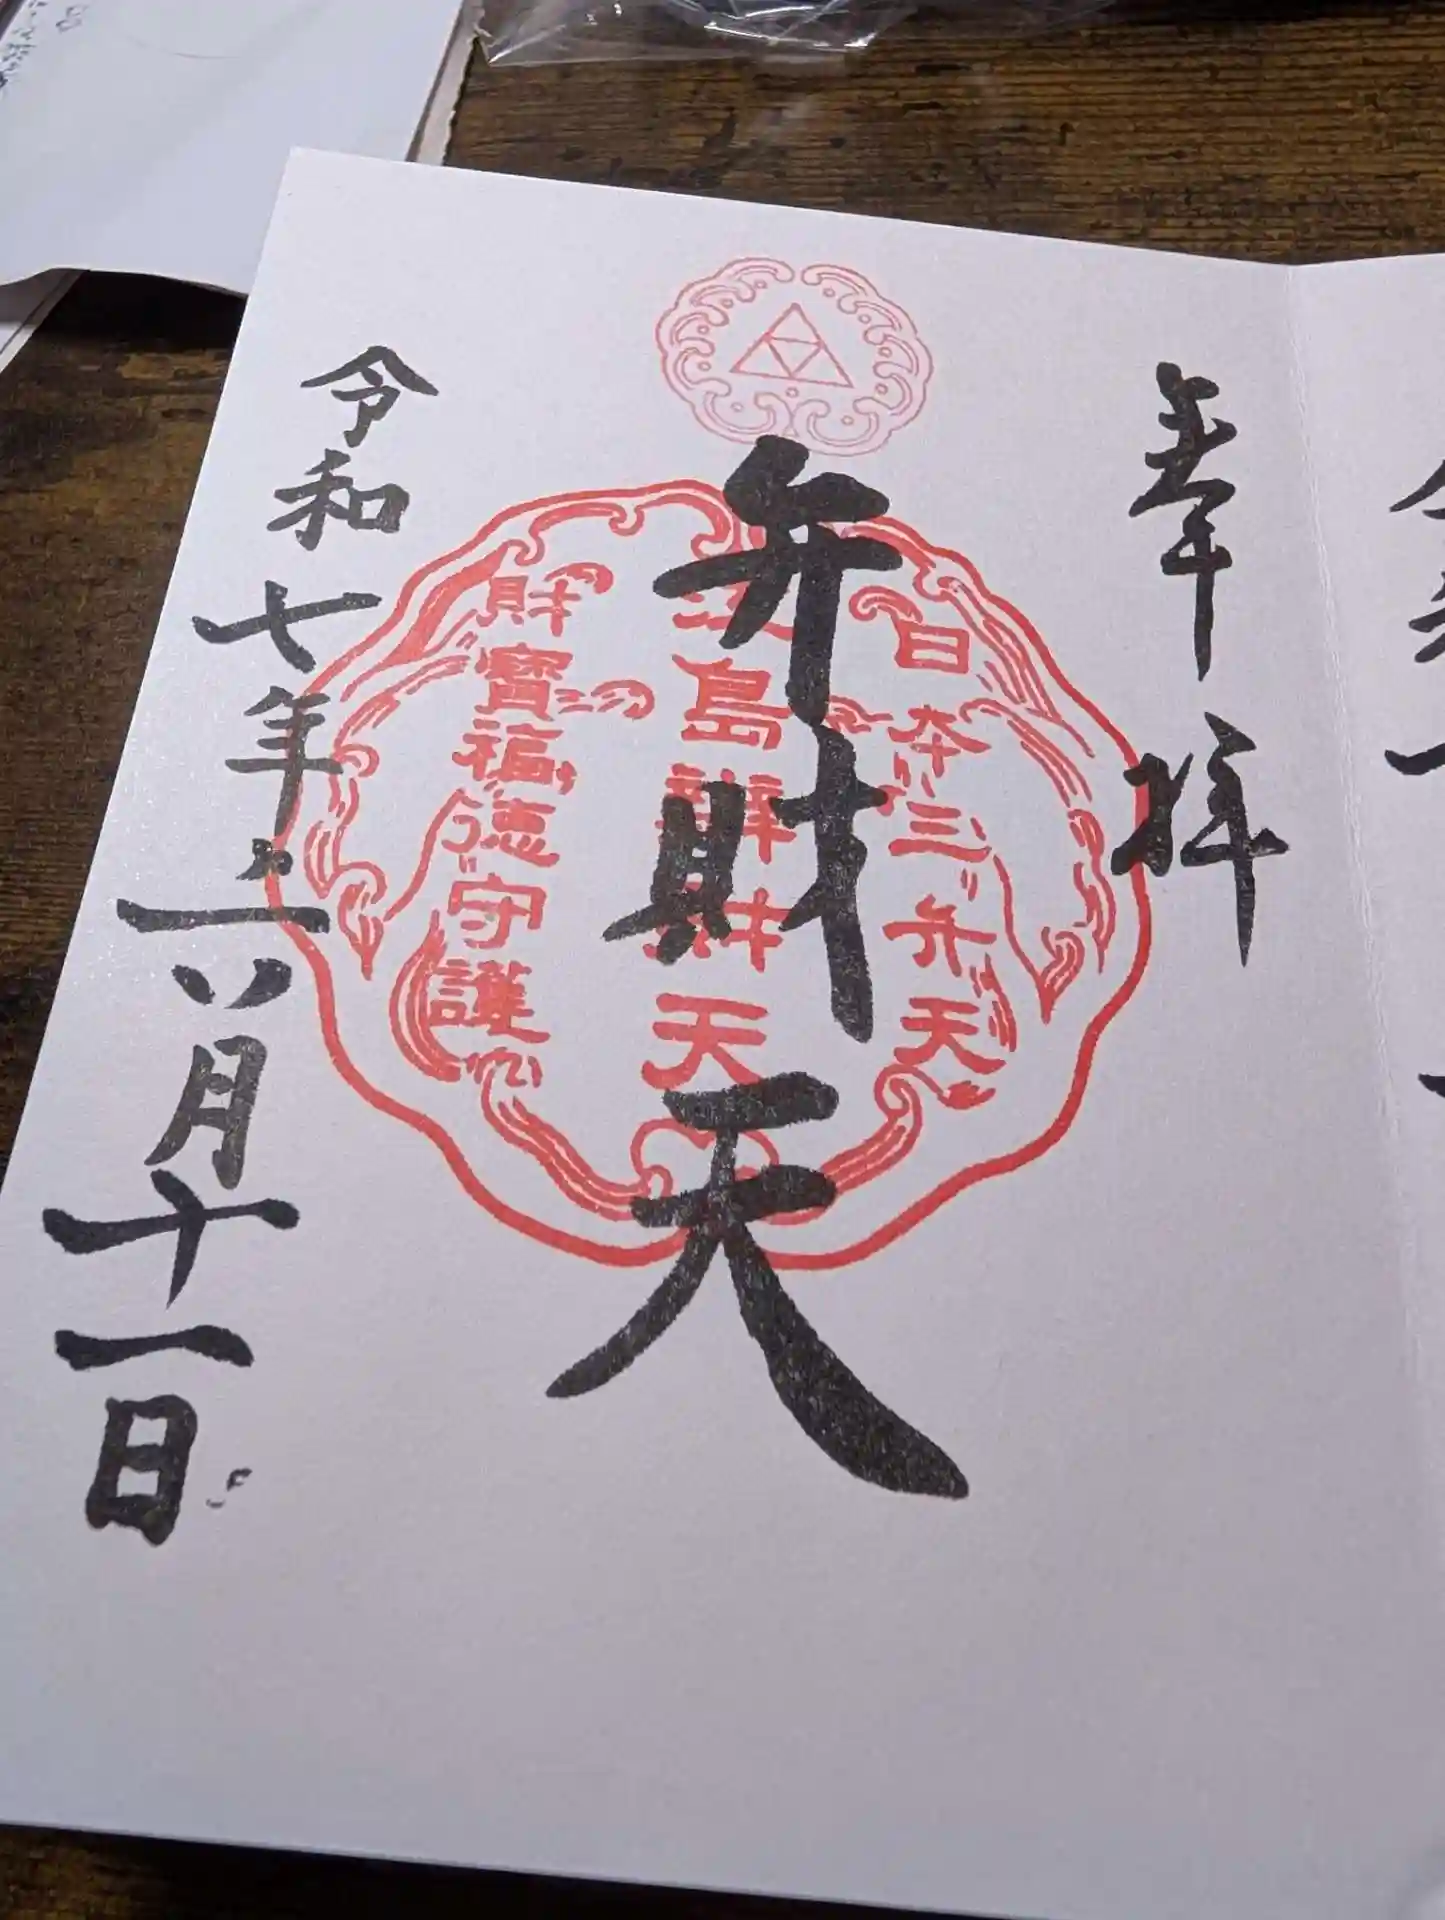 奉拝
日本三弁天
弁財天
江島辨財天
財寶福徳守護
令和七年六月十一日